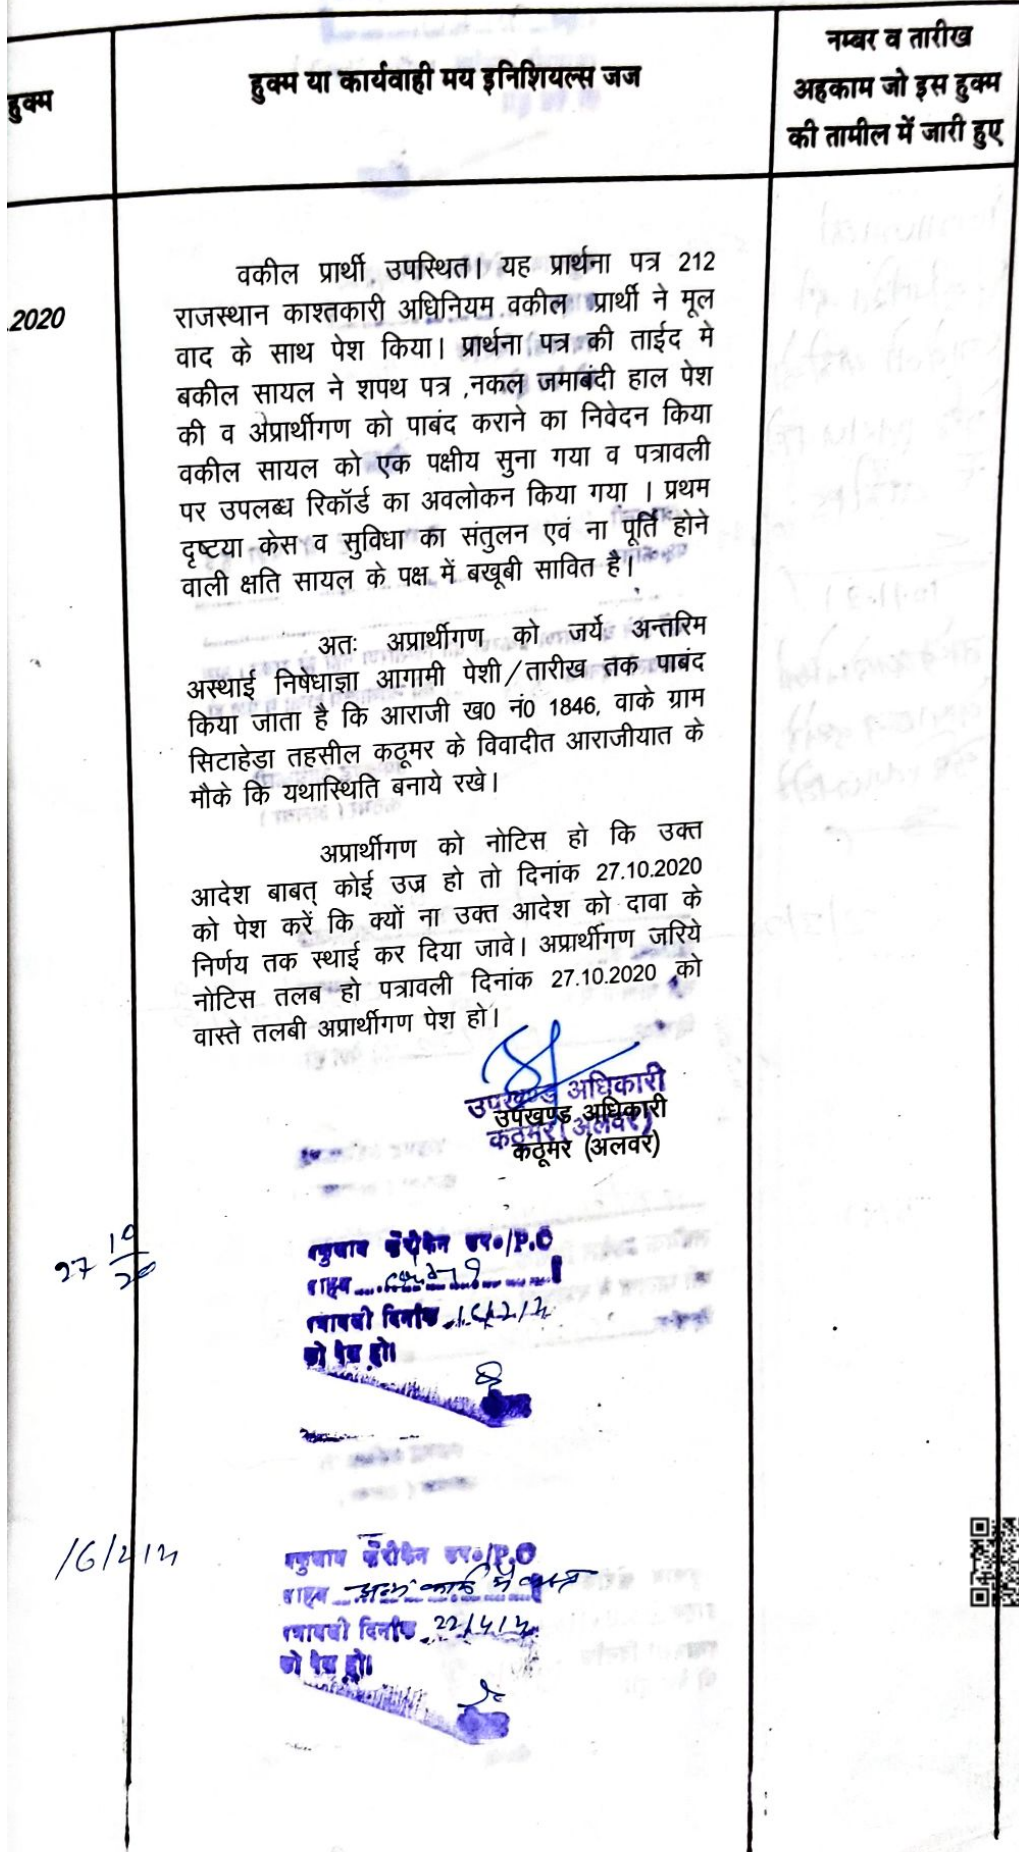 हुक्म
हुक्म या कार्यवाही मय इनिशियल्स जज
नम्बर व तारीख
अहकाम जो इस हुक्म
की तामील में जारी हुए
.2020
वकील प्रार्थी उपस्थित। यह प्रार्थना पत्र 212
राजस्थान काश्तकारी अधिनियम वकील प्रार्थी ने मूल
वाद के साथ पेश किया। प्रार्थना पत्र की ताईद मे
बकील सायल ने शपथ पत्र ,नकल जमाबंदी हाल पेश
की व अप्रार्थीगण को पाबंद कराने का निवेदन किया
वकील सायल को एक पक्षीय सुना गया व पत्रावली
पर उपलब्ध रिकॉर्ड का अवलोकन किया गया । प्रथम
दृष्टया केस व सुविधा का संतुलन एवं ना पूर्ति होने
वाली क्षति सायल के पक्ष में बखूबी सावित है।
अतः अप्रार्थीगण को जर्ये अन्तरिम
अस्थाई निषेधाज्ञा आगामी पेशी/तारीख तक पाबंद
किया जाता है कि आराजी ख0 नं0 1846, वाके ग्राम
सिटाहेडा तहसील कठूमर के विवादीत आराजीयात के
मौके कि यथास्थिति बनाये रखे।
अप्रार्थीगण को नोटिस हो कि उक्त
आदेश बाबत् कोई उज्र हो तो दिनांक 27.10.2020
को पेश करें कि क्यों ना उक्त आदेश को दावा के
निर्णय तक स्थाई कर दिया जावे। अप्रार्थीगण जरिये
नोटिस तलब हो पत्रावली दिनांक 27.10.2020 को
वास्ते तलबी अप्रार्थीगण पेश हो।
उपखण्ड अधिकारी
कठूमर (अलवर)
उपखण्ड अधिकारी
कठूमर (अलवर)
27 10/20
P.O
दिनांक
को पेश हो।
16/2/21
P.O
अन्य कार्य में व्यस्त
दिनांक 22/4/21
को पेश हो।